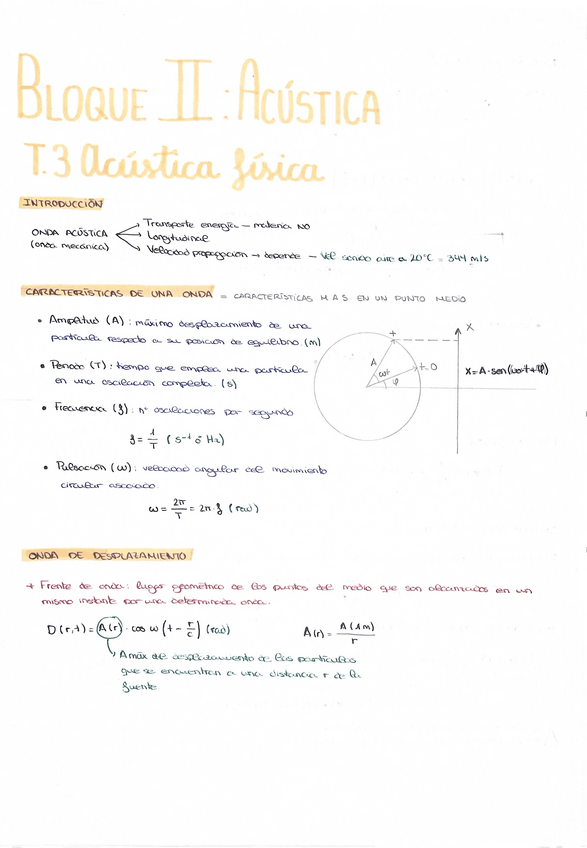 BLOQUE II: ACÚSTICA
T.3 Acústica física
INTRODUCCIÓN
ONDA ACÚSTICA
(onda mecánica)
→ Transporte energía – materia NO
→ Longitudinal
→ Velocidad propagación → depende – Vel sonido aire a 20°C = 344 m/s
CARACTERÍSTICAS DE UNA ONDA = CARACTERÍSTICAS M A S EN UN PUNTO MEDIO
• Amplitud (A): máximo desplazamiento de una
partícula respecto a su posición de equilibrio. (m)
• Periodo (T): tiempo que emplea una partícula
en una oscilación completa. (s)
• Frecuencia (f): nº oscilaciones por segundo
f = 1/T (s⁻¹ ó Hz)
• Pulsación (ω): velocidad angular del movimiento
circular asociado.
ω = 2π/T = 2π·f (rad)
t
A
ωt
φ
t=0
X
X=A·sen(ω·t+φ)
ONDA DE DESPLAZAMIENTO
→ Frente de onda: lugar geométrico de los puntos del medio que son alcanzados en un
mismo instante por una determinada onda.
D(r,t) = A(r) · cos ω (t - r/c) (rad)
A(r) = A(1m)/r
A máx del desplazamiento de las partículas
que se encuentran a una distancia r de la
fuente